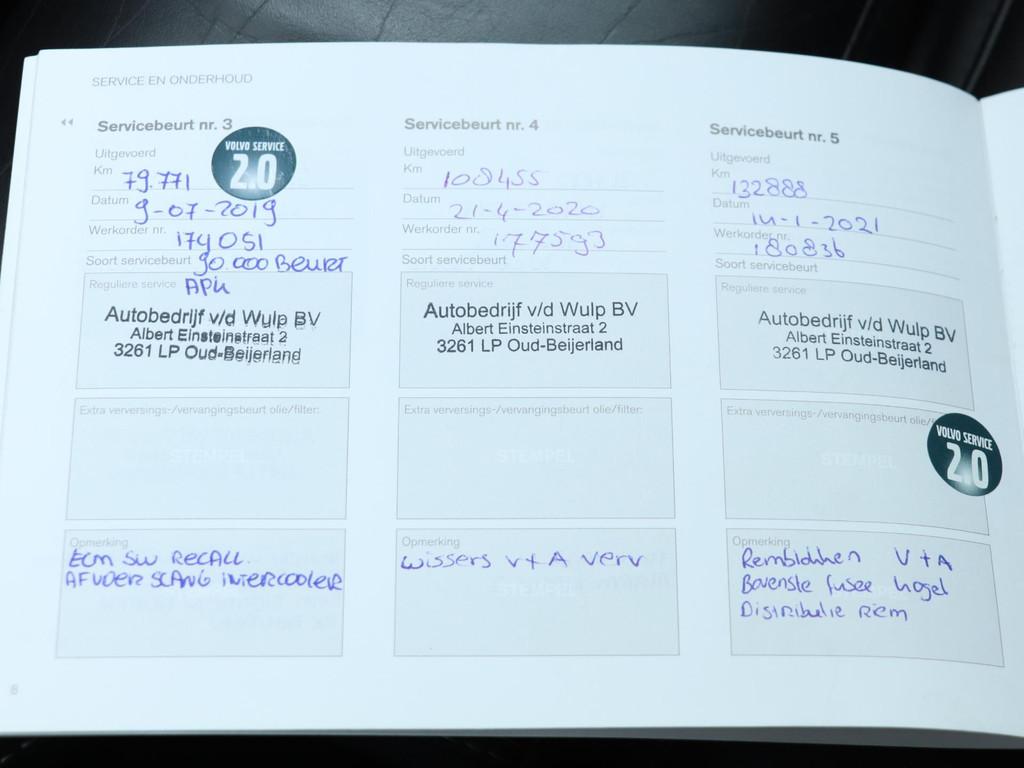 SERVICE EN ONDERHOUD
Servicebeurt nr. 3
VOLVO SERVICE
2.0
Uitgevoerd
Km 79.771
Datum 9-07-2019
Werkorder nr. 174051
Soort servicebeurt 90.000 BEURT
Reguliere service APK
Autobedrijf v/d Wulp BV
Albert Einsteinstraat 2
3261 LP Oud-Beijerland
Extra verversings-/vervangingsbeurt olie/filter:
STEMPEL
Opmerking
ECM SW RECALL.
AFVOER SLANG INTERCOOLER
Servicebeurt nr. 4
Uitgevoerd
Km 108455
Datum 21-4-2020
Werkorder nr. 177593
Soort servicebeurt
Reguliere service
Autobedrijf v/d Wulp BV
Albert Einsteinstraat 2
3261 LP Oud-Beijerland
Extra verversings-/vervangingsbeurt olie/filter:
STEMPEL
Opmerking
wissers v+A verv
Servicebeurt nr. 5
Uitgevoerd
Km 132888
Datum 14-1-2021
Werkorder nr. 180836
Soort servicebeurt
Reguliere service
Autobedrijf v/d Wulp BV
Albert Einsteinstraat 2
3261 LP Oud-Beijerland
Extra verversings-/vervangingsbeurt olie/
VOLVO SERVICE
2.0
STEMPEL
Opmerking
Remblokken V+A
Bovenste fusee kogel
Distributie riem